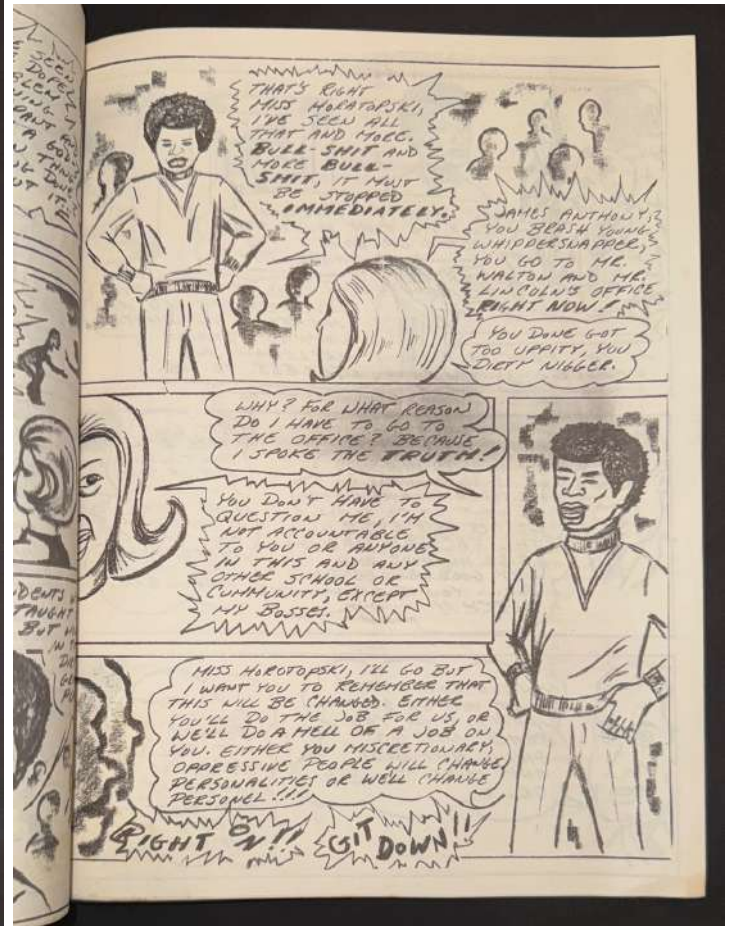 SEEN
DOPE
BLEM
NING
PANT AN
A GOD
THING
DOW
THAT'S RIGHT
MISS HORATOPSKI,
I'VE SEEN ALL
THAT AND MORE.
BULL-SHIT AND
MORE BULL-
SHIT, IT MUST
BE STOPPED
IMMEDIATELY.
JAMES ANTHONY,
YOU BRASH YOUNG
WHIPPERSNAPPER,
YOU GO TO MR.
WALTON AND MR.
LINCOLN'S OFFICE
RIGHT NOW!
YOU DONE GOT
TOO UPPITY, YOU
DIRTY NIGGER.
WHY? FOR WHAT REASON
DO I HAVE TO GO TO
THE OFFICE? BECAUSE
I SPOKE THE TRUTH!
YOU DON'T HAVE TO
QUESTION ME, I'M
NOT ACCOUNTABLE
TO YOU OR ANYONE
IN THIS AND ANY
OTHER SCHOOL OR
CUMMUNITY, EXCEPT
MY BOSSES.
DENTS
TAUGHT
BUT
IN
MISS HOROTOPSKI, I'LL GO BUT
I WANT YOU TO REMEMBER THAT
THIS WILL BE CHANGED. EITHER
YOU'LL DO THE JOB FOR US, OR
WE'LL DO A HELL OF A JOB ON
YOU. EITHER YOU MISCRETIONARY,
OPPRESSIVE PEOPLE WILL CHANGE
PERSONALITIES OR WE'LL CHANGE
PERSONEL!!!!
RIGHT ON!!
GIT DOWN!!